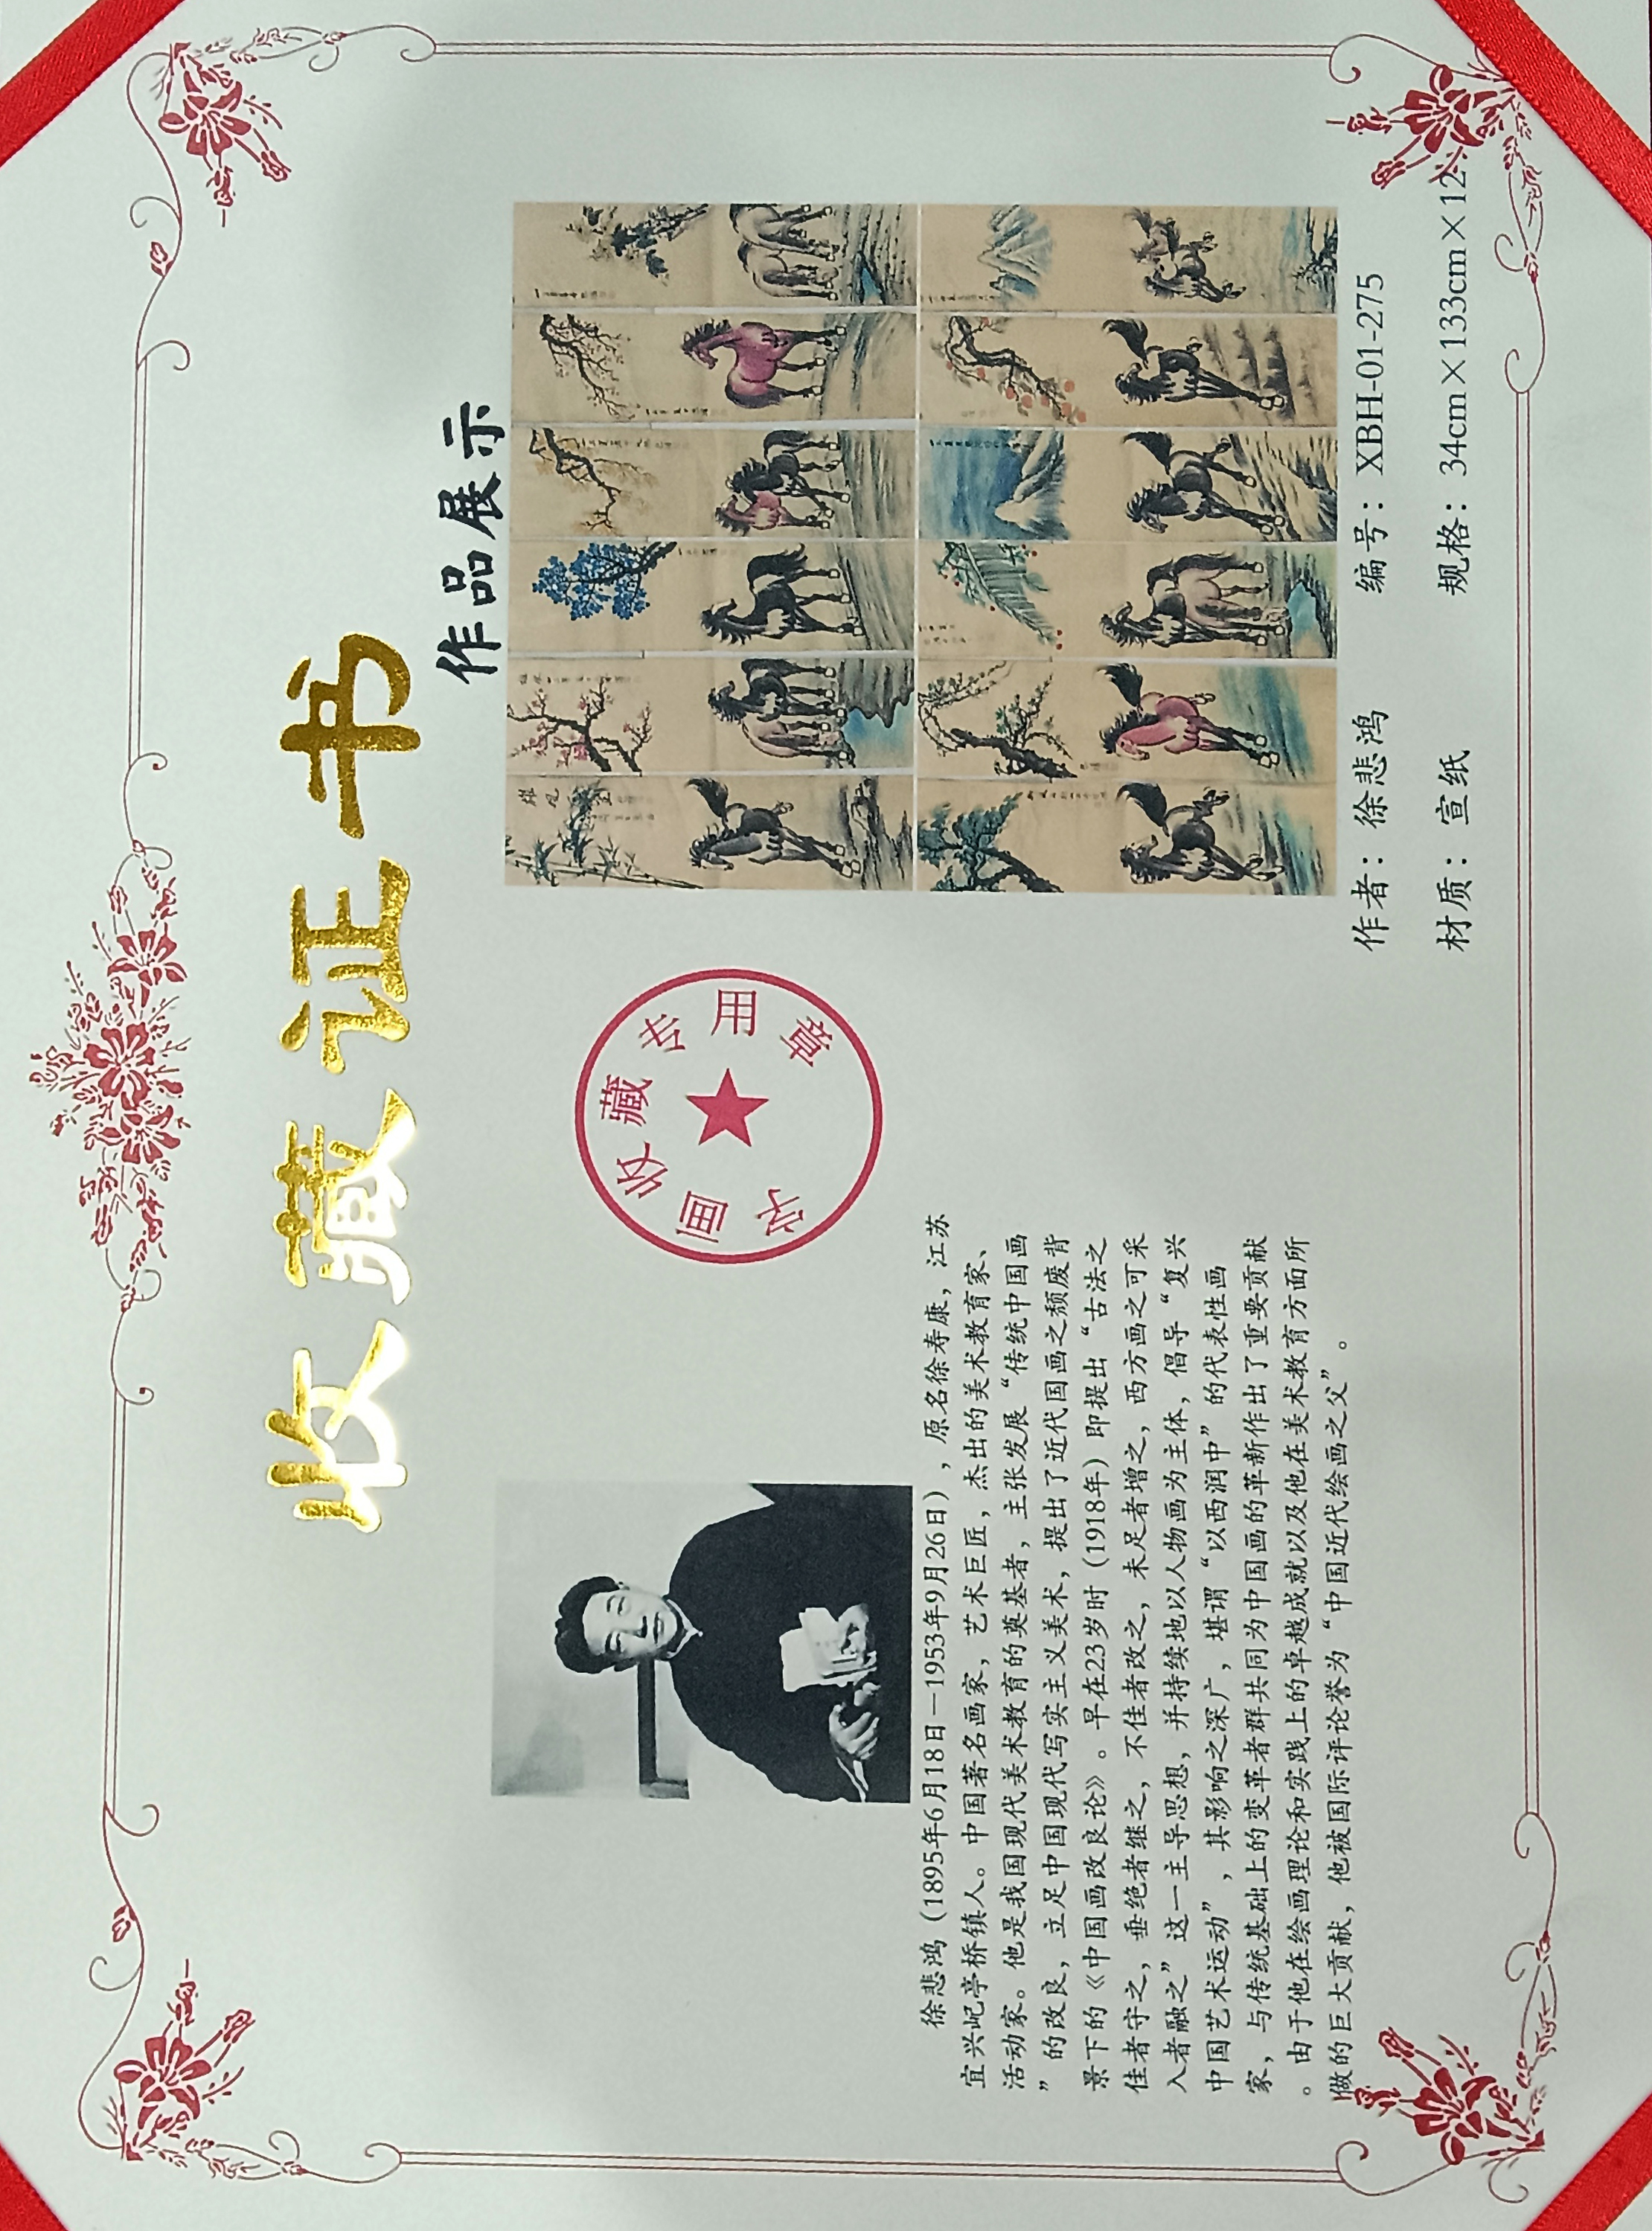 收藏证书
字画收藏专用章
徐悲鸿（1895年6月18日－1953年9月26日），原名徐寿康，江苏
宜兴屺亭桥镇人。中国著名画家，艺术巨匠，杰出的美术教育家、
活动家。他是我国现代美术教育的奠基者，主张发展“传统中国画
”的改良，立足中国现代写实主义美术，提出了近代国画之颓废背
景下的《中国画改良论》。早在23岁时（1918年）即提出“古法之
佳者守之，垂绝者继之，不佳者改之，未足者增之，西方画之可采
入者融之”这一主导思想，并持续地以人物画为主体，倡导“复兴
中国艺术运动”，其影响之深广，堪谓“以西润中”的代表性画
家，与传统基础上的变革者群共同为中国画的革新作出了重要贡献
。由于他在绘画理论和实践上的卓越成就以及他在美术教育方面所
做的巨大贡献，他被国际评论誉为“中国近代绘画之父”。
作品展示
作者：徐悲鸿 编号：XBH-01-275
材质：宣纸 规格：34cm×133cm×12